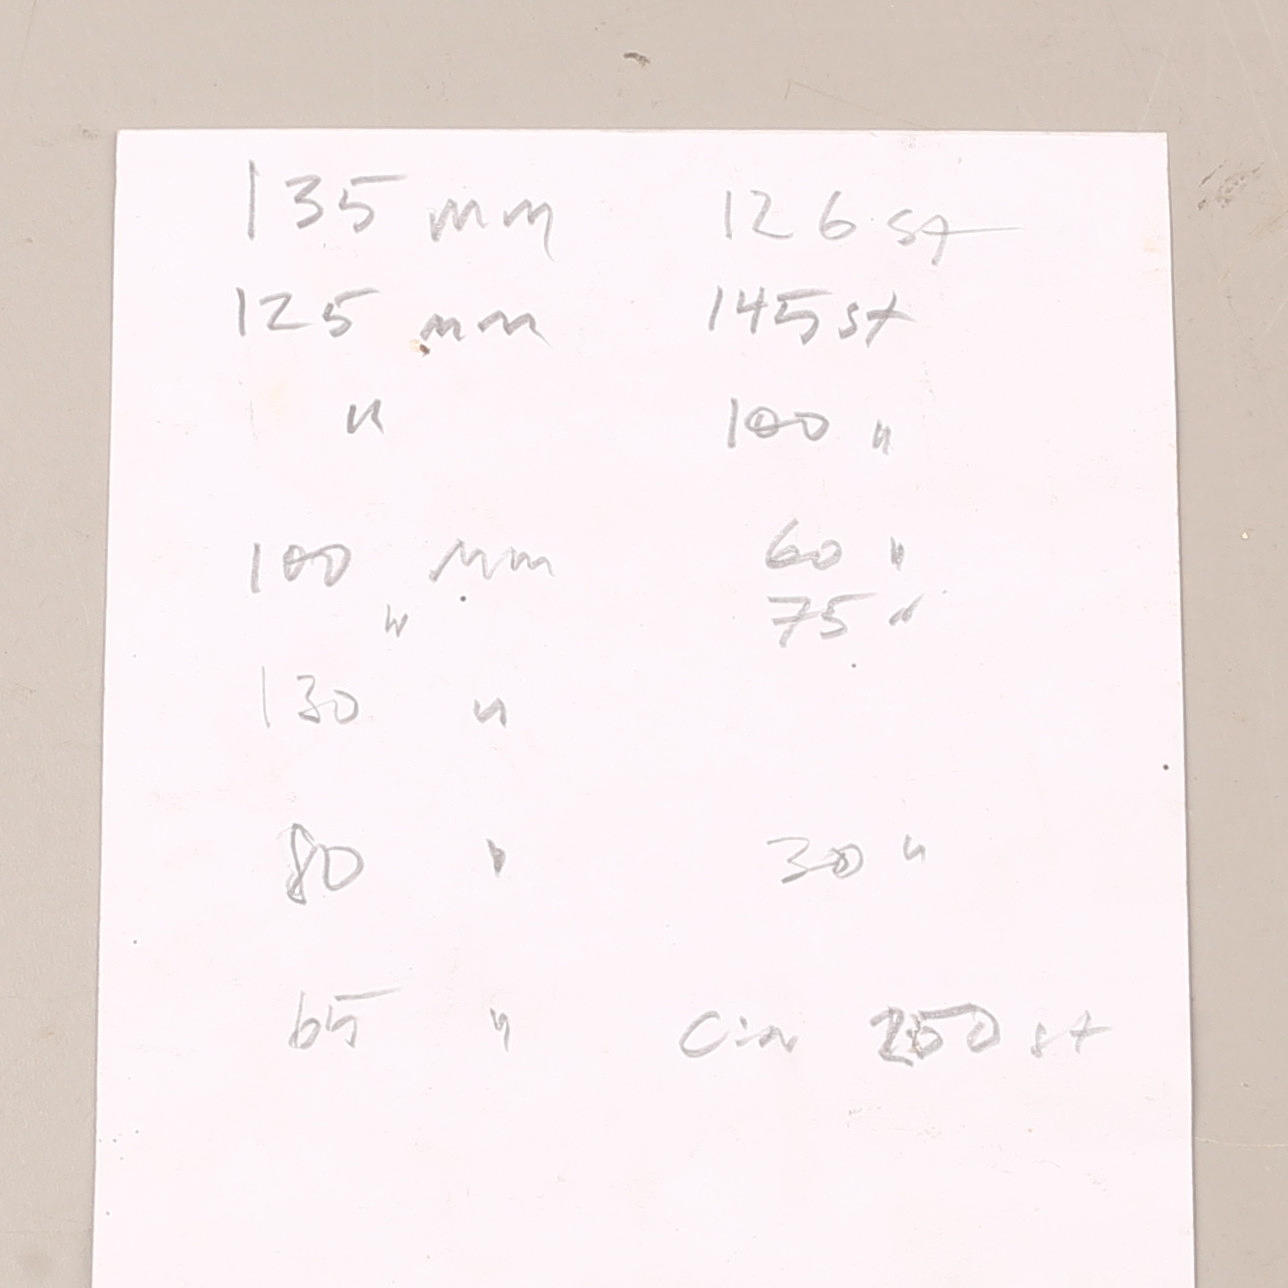 135 mm 126 st
125 mm 145 st
" 100 "
100 mm 60 "
" 75 "
130 "
80 " 30 "
65 " Cia 250 st